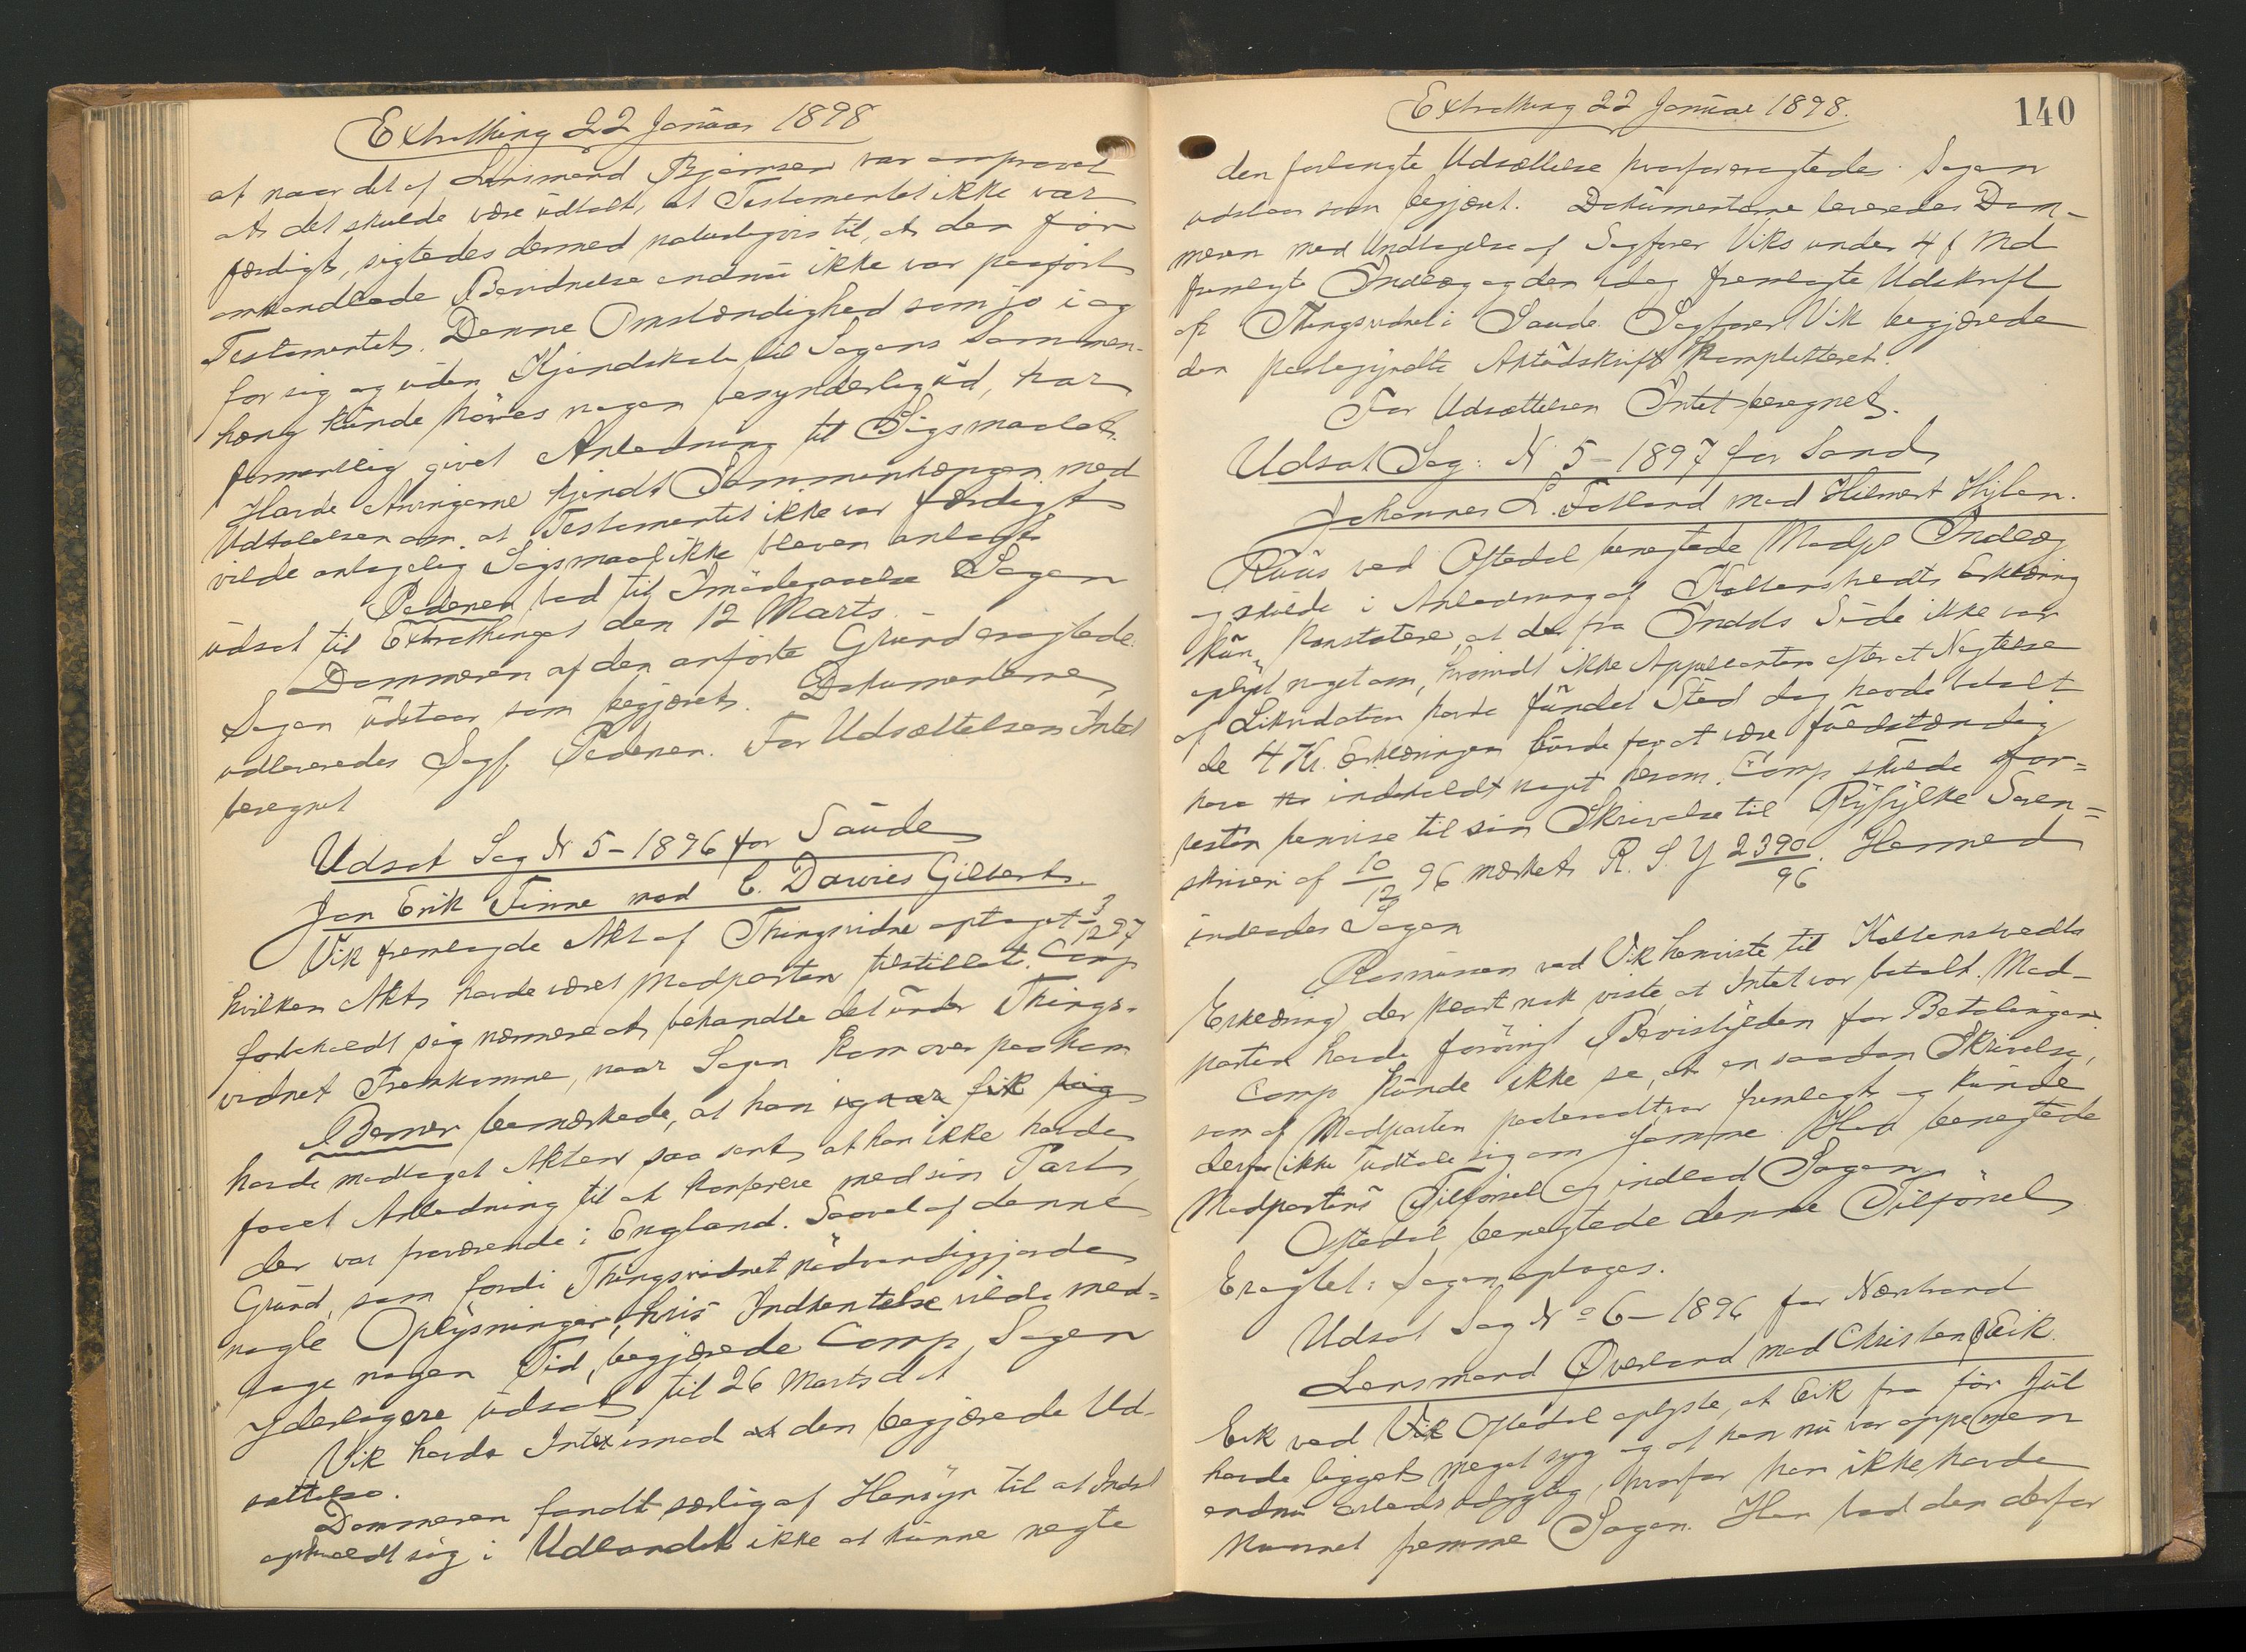 Extrathing 22 Januar 1898
at naar det af Lensmand Bjørnsen var
at det skulde være udtalt, at Testamentet ikke var
færdigt, sigtedes dermed naturligvis til, at den før
omhandlede Bevidnelse endnu ikke var paaført
Testamentet. Denne Omstændighed som jo i og
for sig og uden Kjendskab til Sagens Sammen-
hæng kunde høres nogen besynderlig ud, har
formentlig givet Anledning til Sigsmaalet.
Havde Arvingerne kjendt Sammenhængen med
Udtalelsen om at Testamentet ikke var færdigt
vilde antagelig Sagsmaal ikke bleven anlagt
Pedersen bad til Imødegaaelse Sagen
udsat til Extrathinget den 12 Marts.
Dommeren af den anførte Grund eragtede:
Sagen udstaar som begjært. Dokumenterne
udleveredes Sagf. Pedersen. For Udsættelsen Intet
beregnet
Udsat Sag N 5 - 1896 for Saude
Jan Erik Finne mod C. Davies Gilbert.
Vik fremlagde Akt af Thingsvidne optaget 3/12 97
hvilken Akt havde været Modparten tilstillet. Comp
forbeholdt sig nærmere at behandle det under Things-
vidnet Fremkomne, naar Sagen kom over paa ham
Berner bemærkede, at han igaar fik
havde modtaget Akten saa sent at han ikke havde
faaet Anledning til at konferere med sin Part,
der var fraværende i England. Saavel af denne
Grund, som fordi Thingsvidnet nødvendiggjorde
nogle Oplysninger, hvis Indhentelse vilde med-
tage nogen Tid, begjærede Comp Sagen
yderligere udsat til 26 Marts d A
Vik havde Intet imod at den begjærede Ud-
sættelse.
Dommeren fandt særlig af Hensyn til at Indst
opholdt sig i Udlandet ikke at kunne negte
Extrathing 22 Januar 1898.
140
den forlangte Udsættelse hvorfor eragtedes Sagen
udstaar som begjært. Dokumenterne leveredes Dom-
meren med Undtagelse af Sagfører Viks under 4 f Md
fremlagte Indlæg og den idag fremlagte Udskrift
af Thingsvidnet i Saude. Sagfører Vik begjærede
den paabegyndte Aktudskrift kompletteret.
For Udsættelsen Intet beregnet.
Udsat Sag: N 5 - 1897 for Sand
Johannes L. Fatland mod Hilmert Hylen.
Ruus ved Oftedal benegtede Modps Indlæg
og skulde i Anledning af Kaltenstvedts Erklæring
kun konstatere, at der fra Indsts Side ikke var
oplyst noget om, hvorvidt ikke Appellanten efter at Negtelse
af Likvidation havde fundet Sted dog havde betalt
de 4 Kr. Erklæringen burde for at være fuldstændig
have indeholdt noget herom. Comp skulde for-
resten henvise til sin Skrivelse til Ryfylke Soren-
skriveri af 10/12 96 mærket R. S. Y 2390/96. Hermed
indlodes Sagen
Rasmussen ved Vik henviste til Kaltenstvedts
Erklæring, der klart nok viste, at Intet var betalt. Mod-
parten havde forøvrigt Bevisbyrden for Betalingen
Comp kunde ikke se, at en saadan Skrivelse,
som af Modparten paaberaabt var fremlagt og kunde
derfor ikke udtale sig om samme. Han benegtede
Modpartens Tilførsel og indlod Sagen.
Oftedal benegtede denne Tilførsel
Eragtet: Sagen optages.
Udsat Sag No 6 - 1896 for Nærstrand
Lensmand Øverland mod Christen Eik.
Eik ved Vik Oftedal oplyste, at Eik fra før Jul
havde ligget meget syg og at han nu var oppe men
endnu arbeidsudygtig, hvorfor han ikke havde
kunnet fremme Sagen. Han bad den derfor